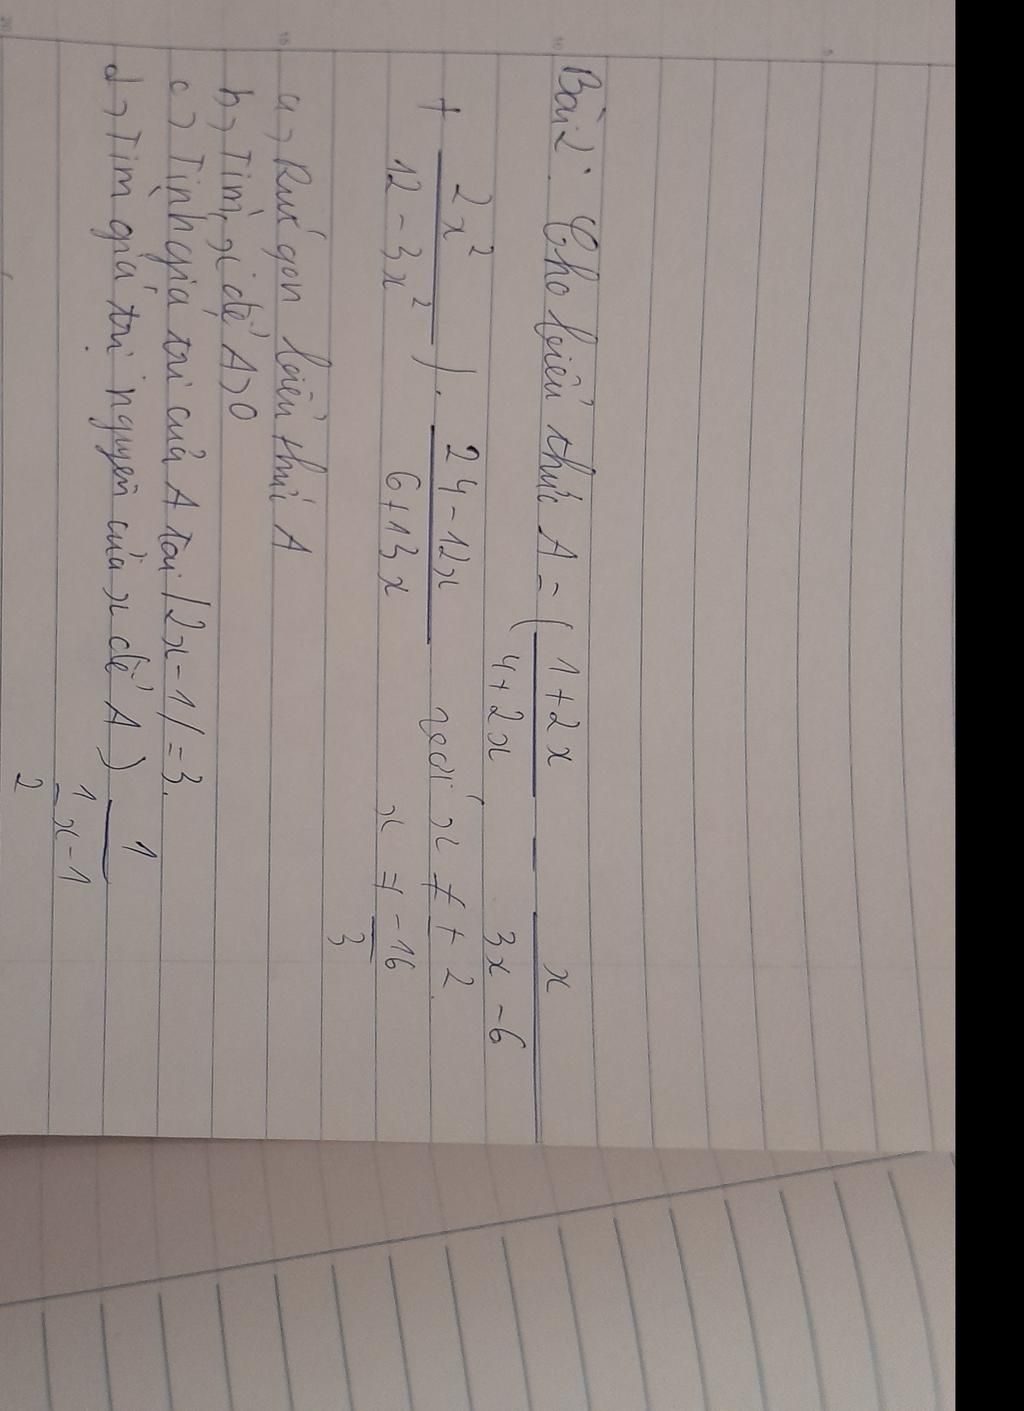 Bài 2: Cho biểu thức A = ( \frac{1+2x}{4+2x} - \frac{x}{3x-6}
+ \frac{2x²}{12-3x²} ) . \frac{24-12x}{6+13x} với x ≠ ± 2.
x ≠ \frac{-16}{3}
a> Rút gọn biểu thức A
b> Tìm x để A>0
c> Tính giá trị của A tại |2x-1|=3.
d> Tìm giá trị nguyên của x để A > \frac{1}{\frac{1}{2}x-1}